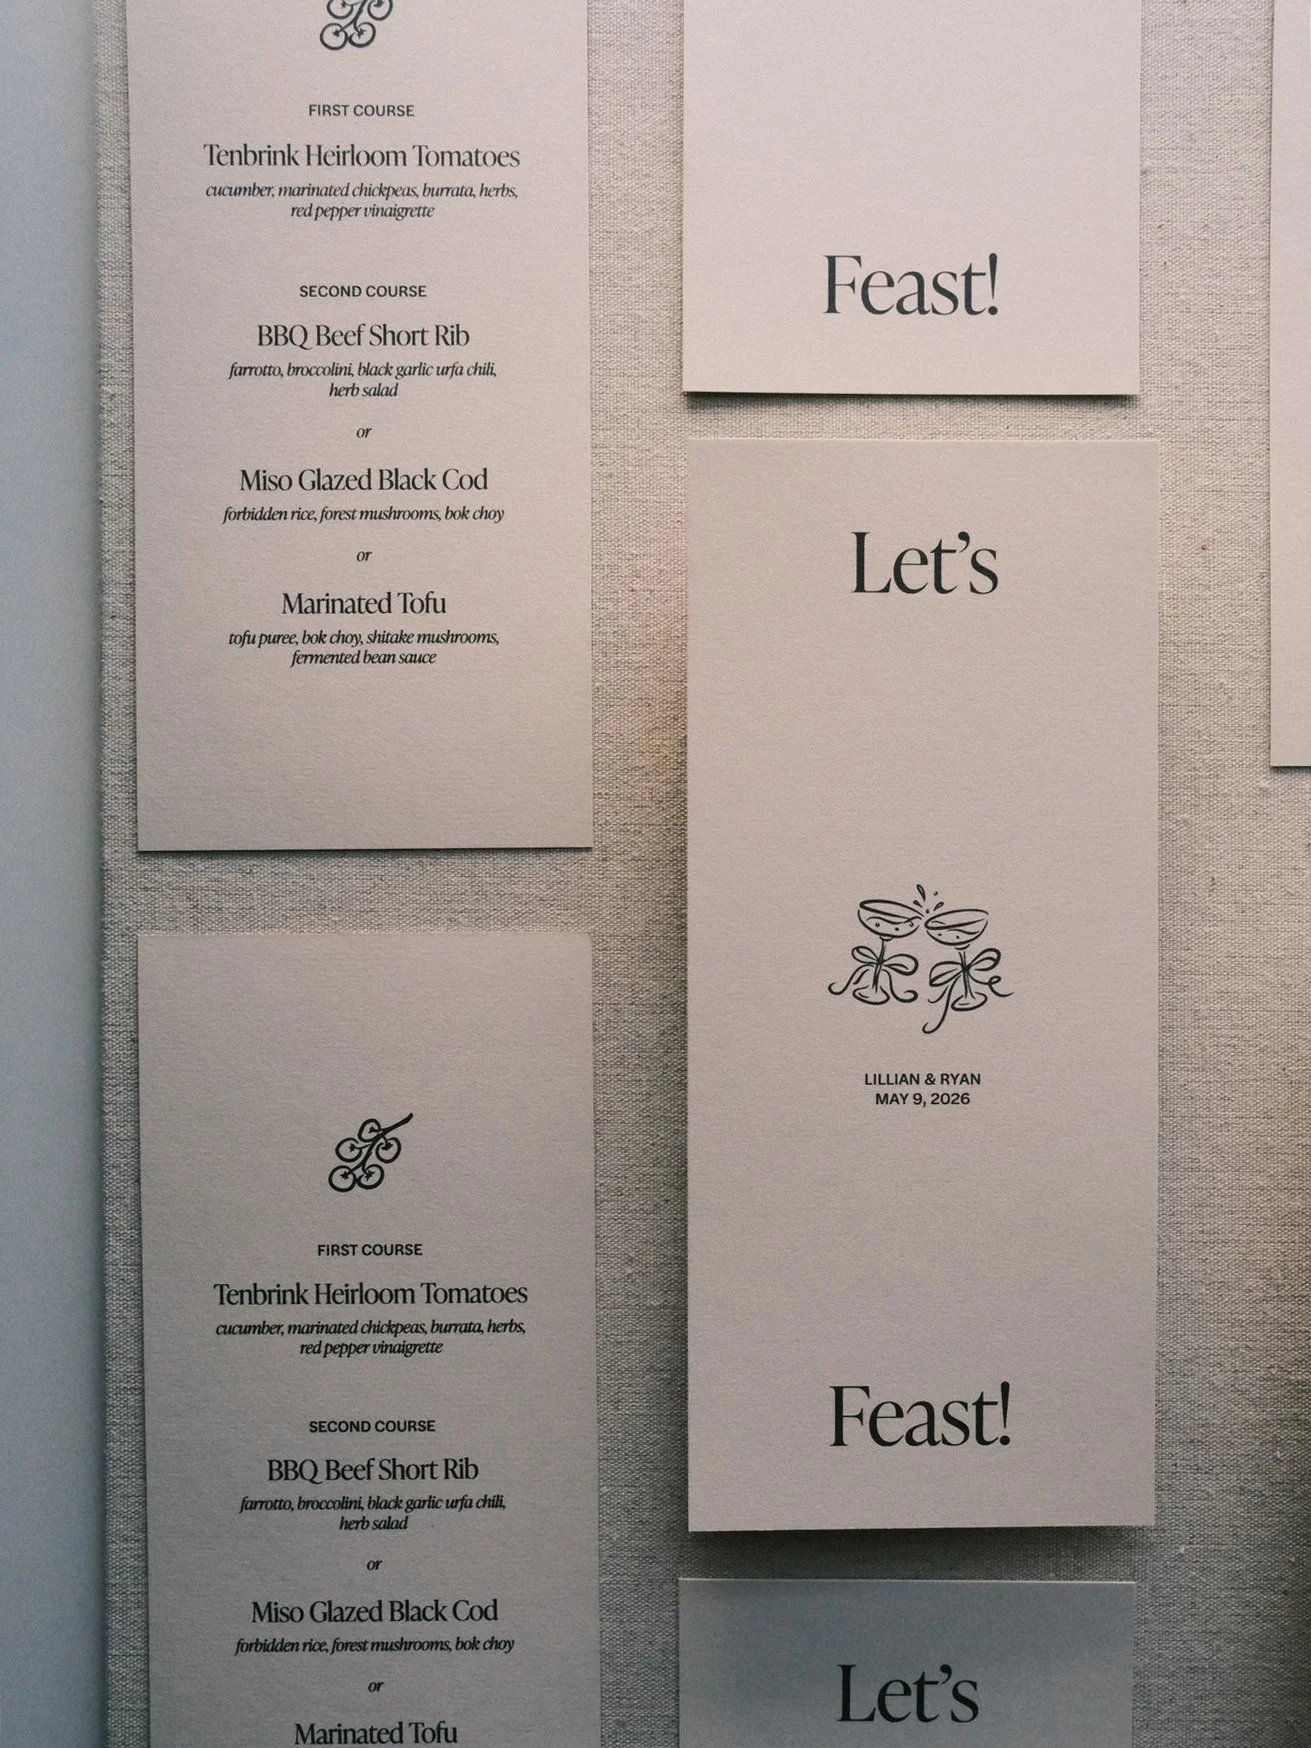 FIRST COURSE
Tenbrink Heirloom Tomatoes
cucumber, marinated chickpeas, burrata, herbs,
red pepper vinaigrette
SECOND COURSE
BBQ Beef Short Rib
farrotto, broccolini, black garlic urfa chili,
herb salad
or
Miso Glazed Black Cod
forbidden rice, forest mushrooms, bok choy
or
Marinated Tofu
tofu puree, bok choy, shitake mushrooms,
fermented bean sauce
FIRST COURSE
Tenbrink Heirloom Tomatoes
cucumber, marinated chickpeas, burrata, herbs,
red pepper vinaigrette
SECOND COURSE
BBQ Beef Short Rib
farrotto, broccolini, black garlic urfa chili,
herb salad
or
Miso Glazed Black Cod
forbidden rice, forest mushrooms, bok choy
or
Marinated Tofu
Feast!
Let's
LILLIAN & RYAN
MAY 9, 2026
Feast!
Let's